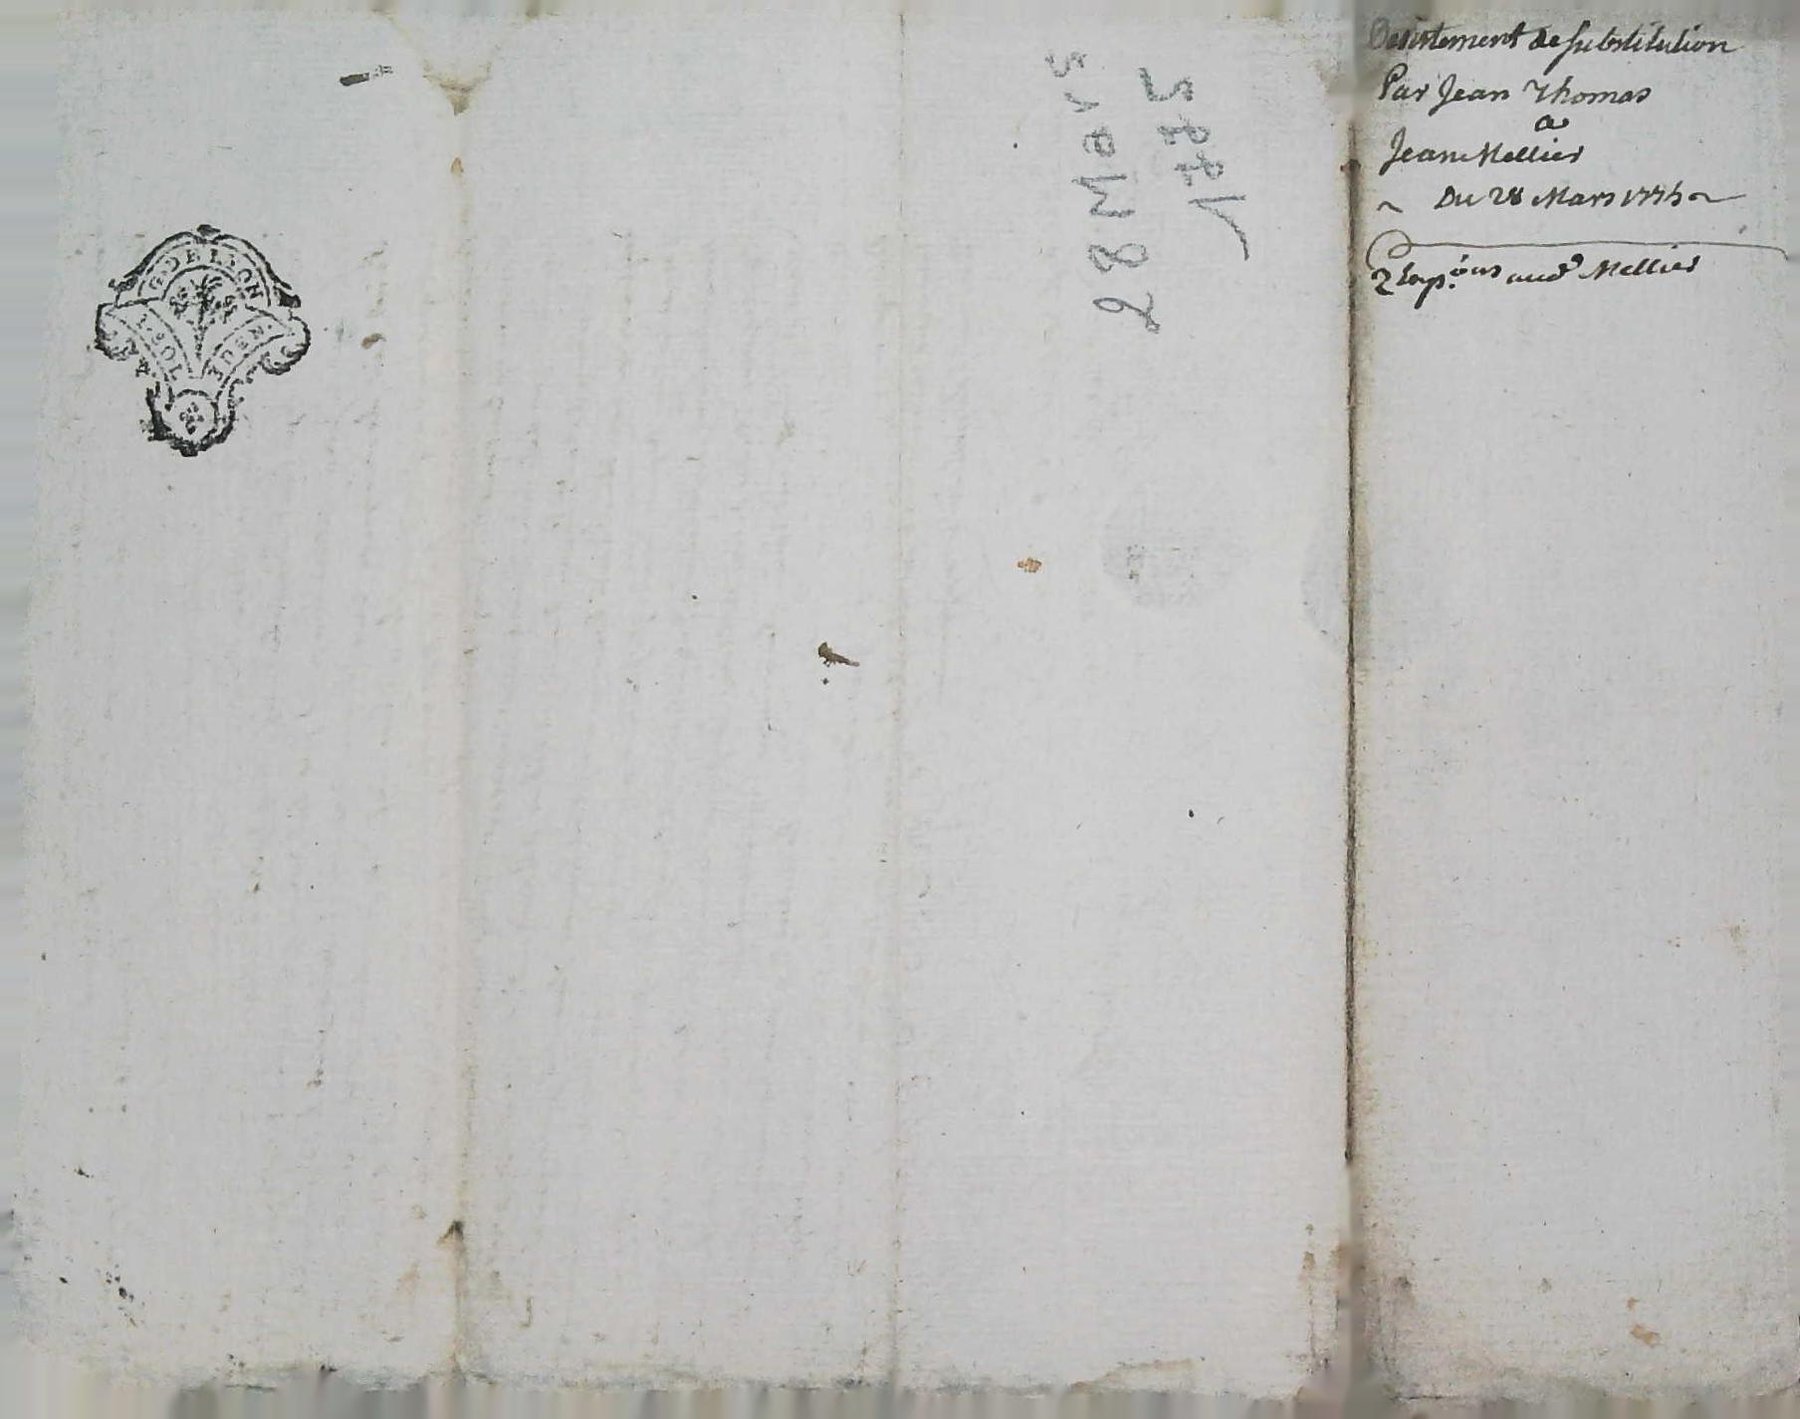 G. DE LYON
1. SOL
28 Mars
1775
Desistement de substitution
Par Jean Thomas
a
Jean Mellier
Du 28 Mars 1775
2 Exp. ons aud. Mellier